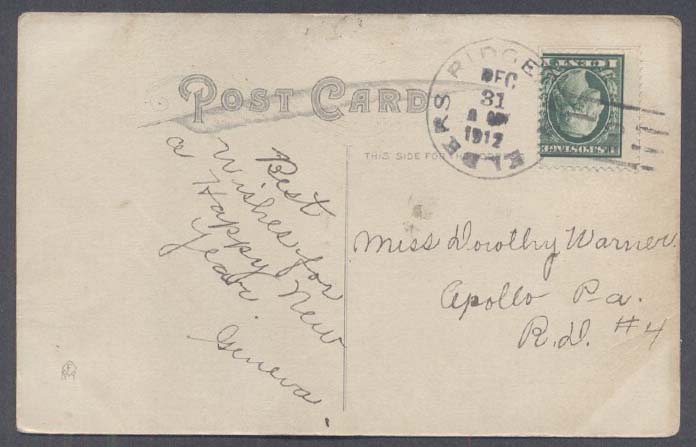 POST CARD
ELDERS RIDGE
DEC
31
1912
1 CENT
U.S.POSTAGE
THIS SIDE FOR THE
Best
Wishes for
a Happy New
Year.
Geneva.
Miss Dorothy Warner
Apollo Pa.
R.D. #4